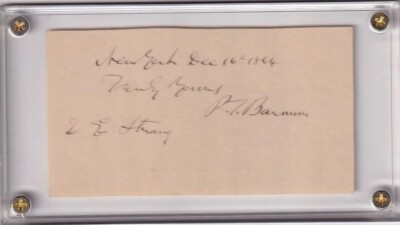 New York Dec 14th 1864
Truly Yours
P. T. Barnum
E E Strong